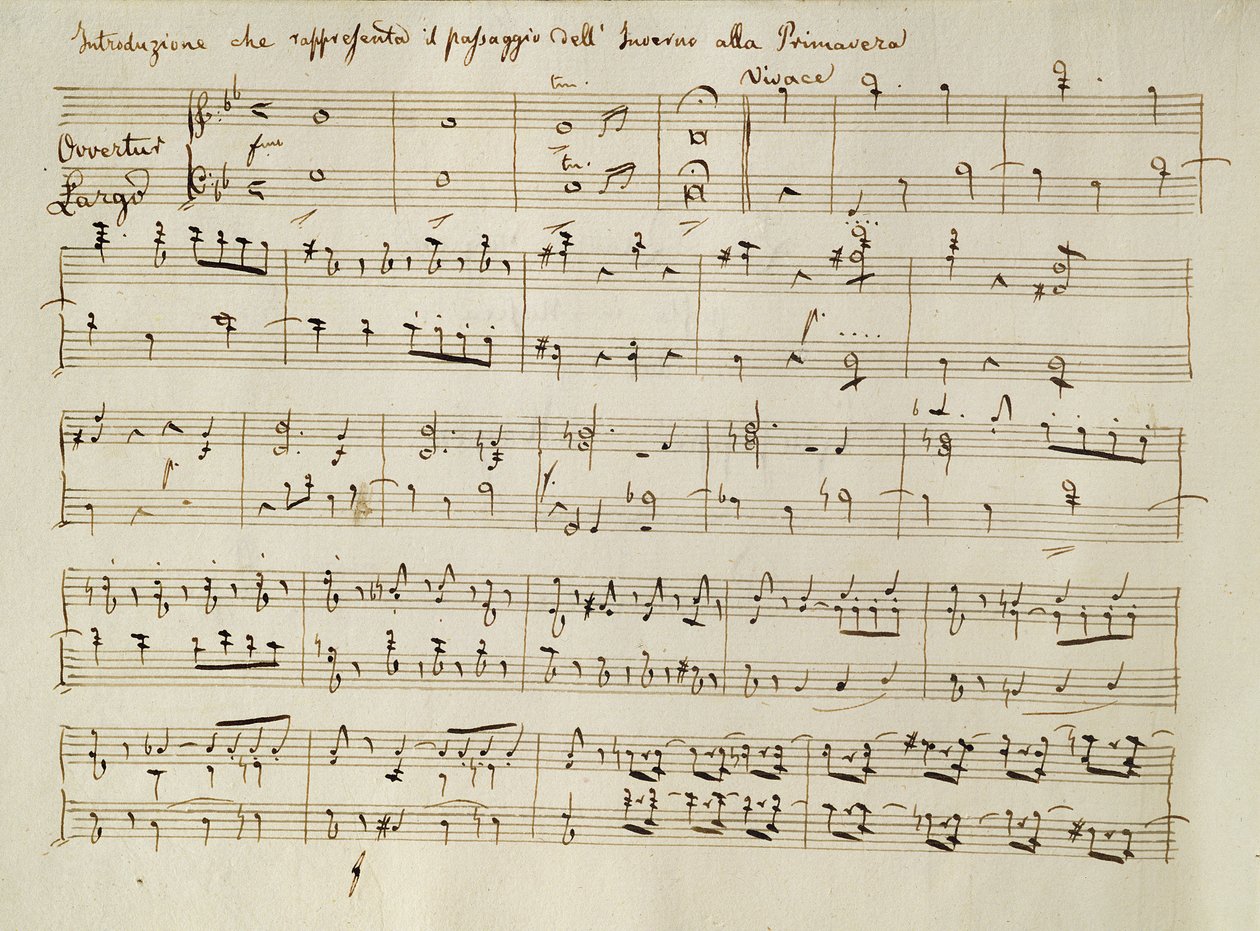 Introduzione che rappresenta il passaggio dell' Inverno alla Primavera
Vivace
tr
Ovvertur
Largo
tr
p.
p.
f.
f